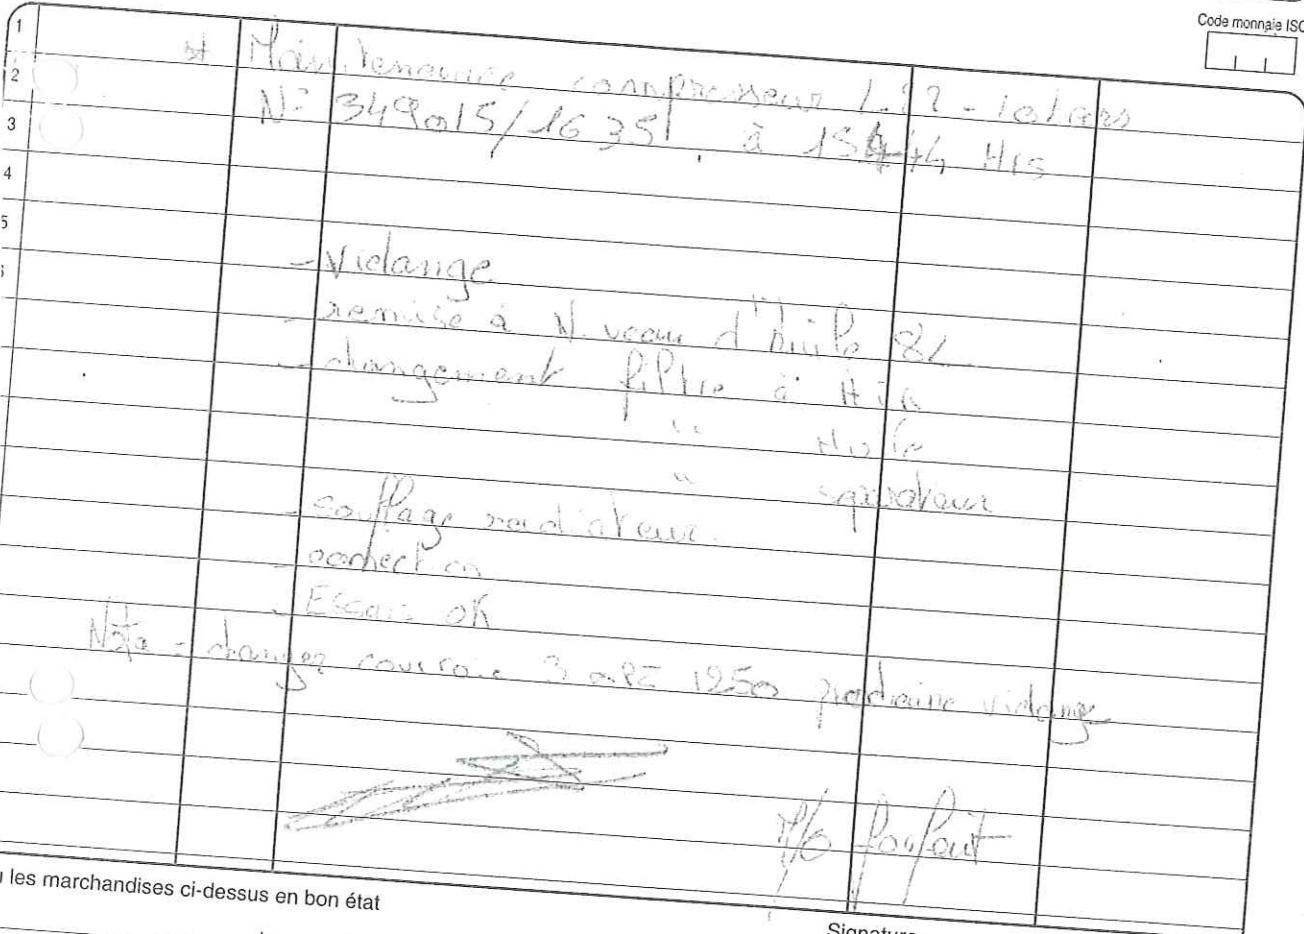 Code monnaie ISO
1
Maintenance compresseur L22-
2
N° 349015/1635 à Hrs
3
4
5
- Vidange
- remise à Niveau d'huile 8L
- changement filtre à Air
" Huile
" separateur
- soufflage radiateur.
- connection
- Essais OK
Nota = changer courroie 3 1250 prochaine vidange
M/O forfait
les marchandises ci-dessus en bon état
Signature